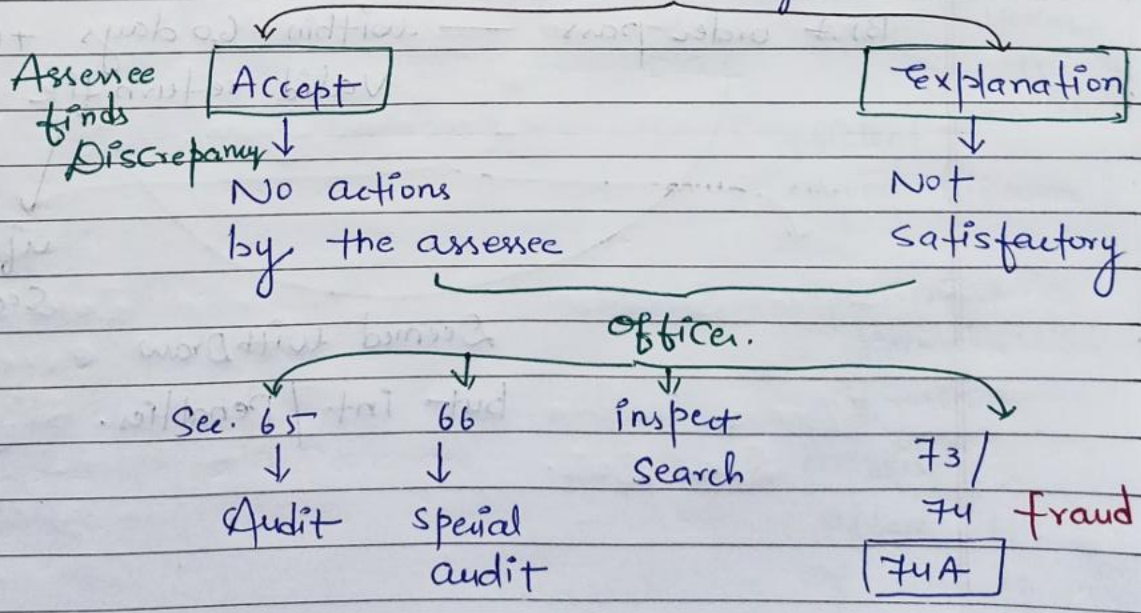 Assessee
finds
Discrepancy
Accept
No actions
by the assessee
Explanation
Not
satisfactory
Officer.
Sec. 65
Audit
66
special
audit
inspect
search
73/
74 fraud
74A